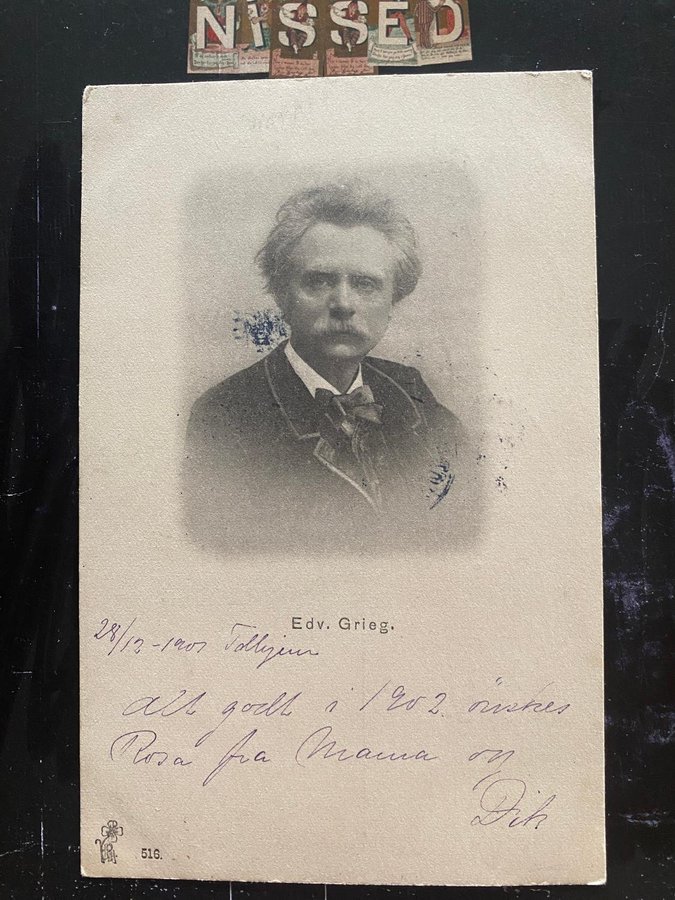 NISSED
Edv. Grieg.
28/12-1901
Alt godt i 1902 önskes
Rosa fra Mama og
Dik
516.